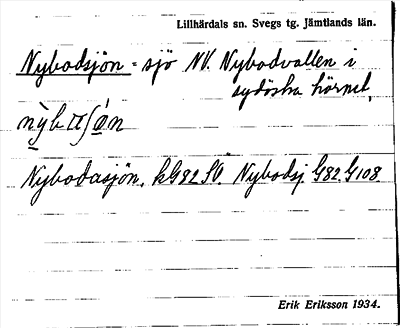 Lillhärdals sn. Svegs tg. Jämtlands län.
Nybodsjön - sjö NV. Nybodvallen i
sydöstra hörnet,
Nybodasjön, kG82 SV. Nybodsj. G82. G108.
Erik Eriksson 1934.